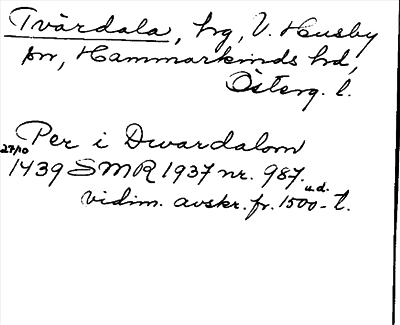 Tvärdala, hg, V. Husby
sn, Hammarkinds hd,
Österg. l.
Per i Dwardalom
27/10 1439 SMR 1937 nr. 987.
vidim. avskr. fr. 1500-t. u.d.